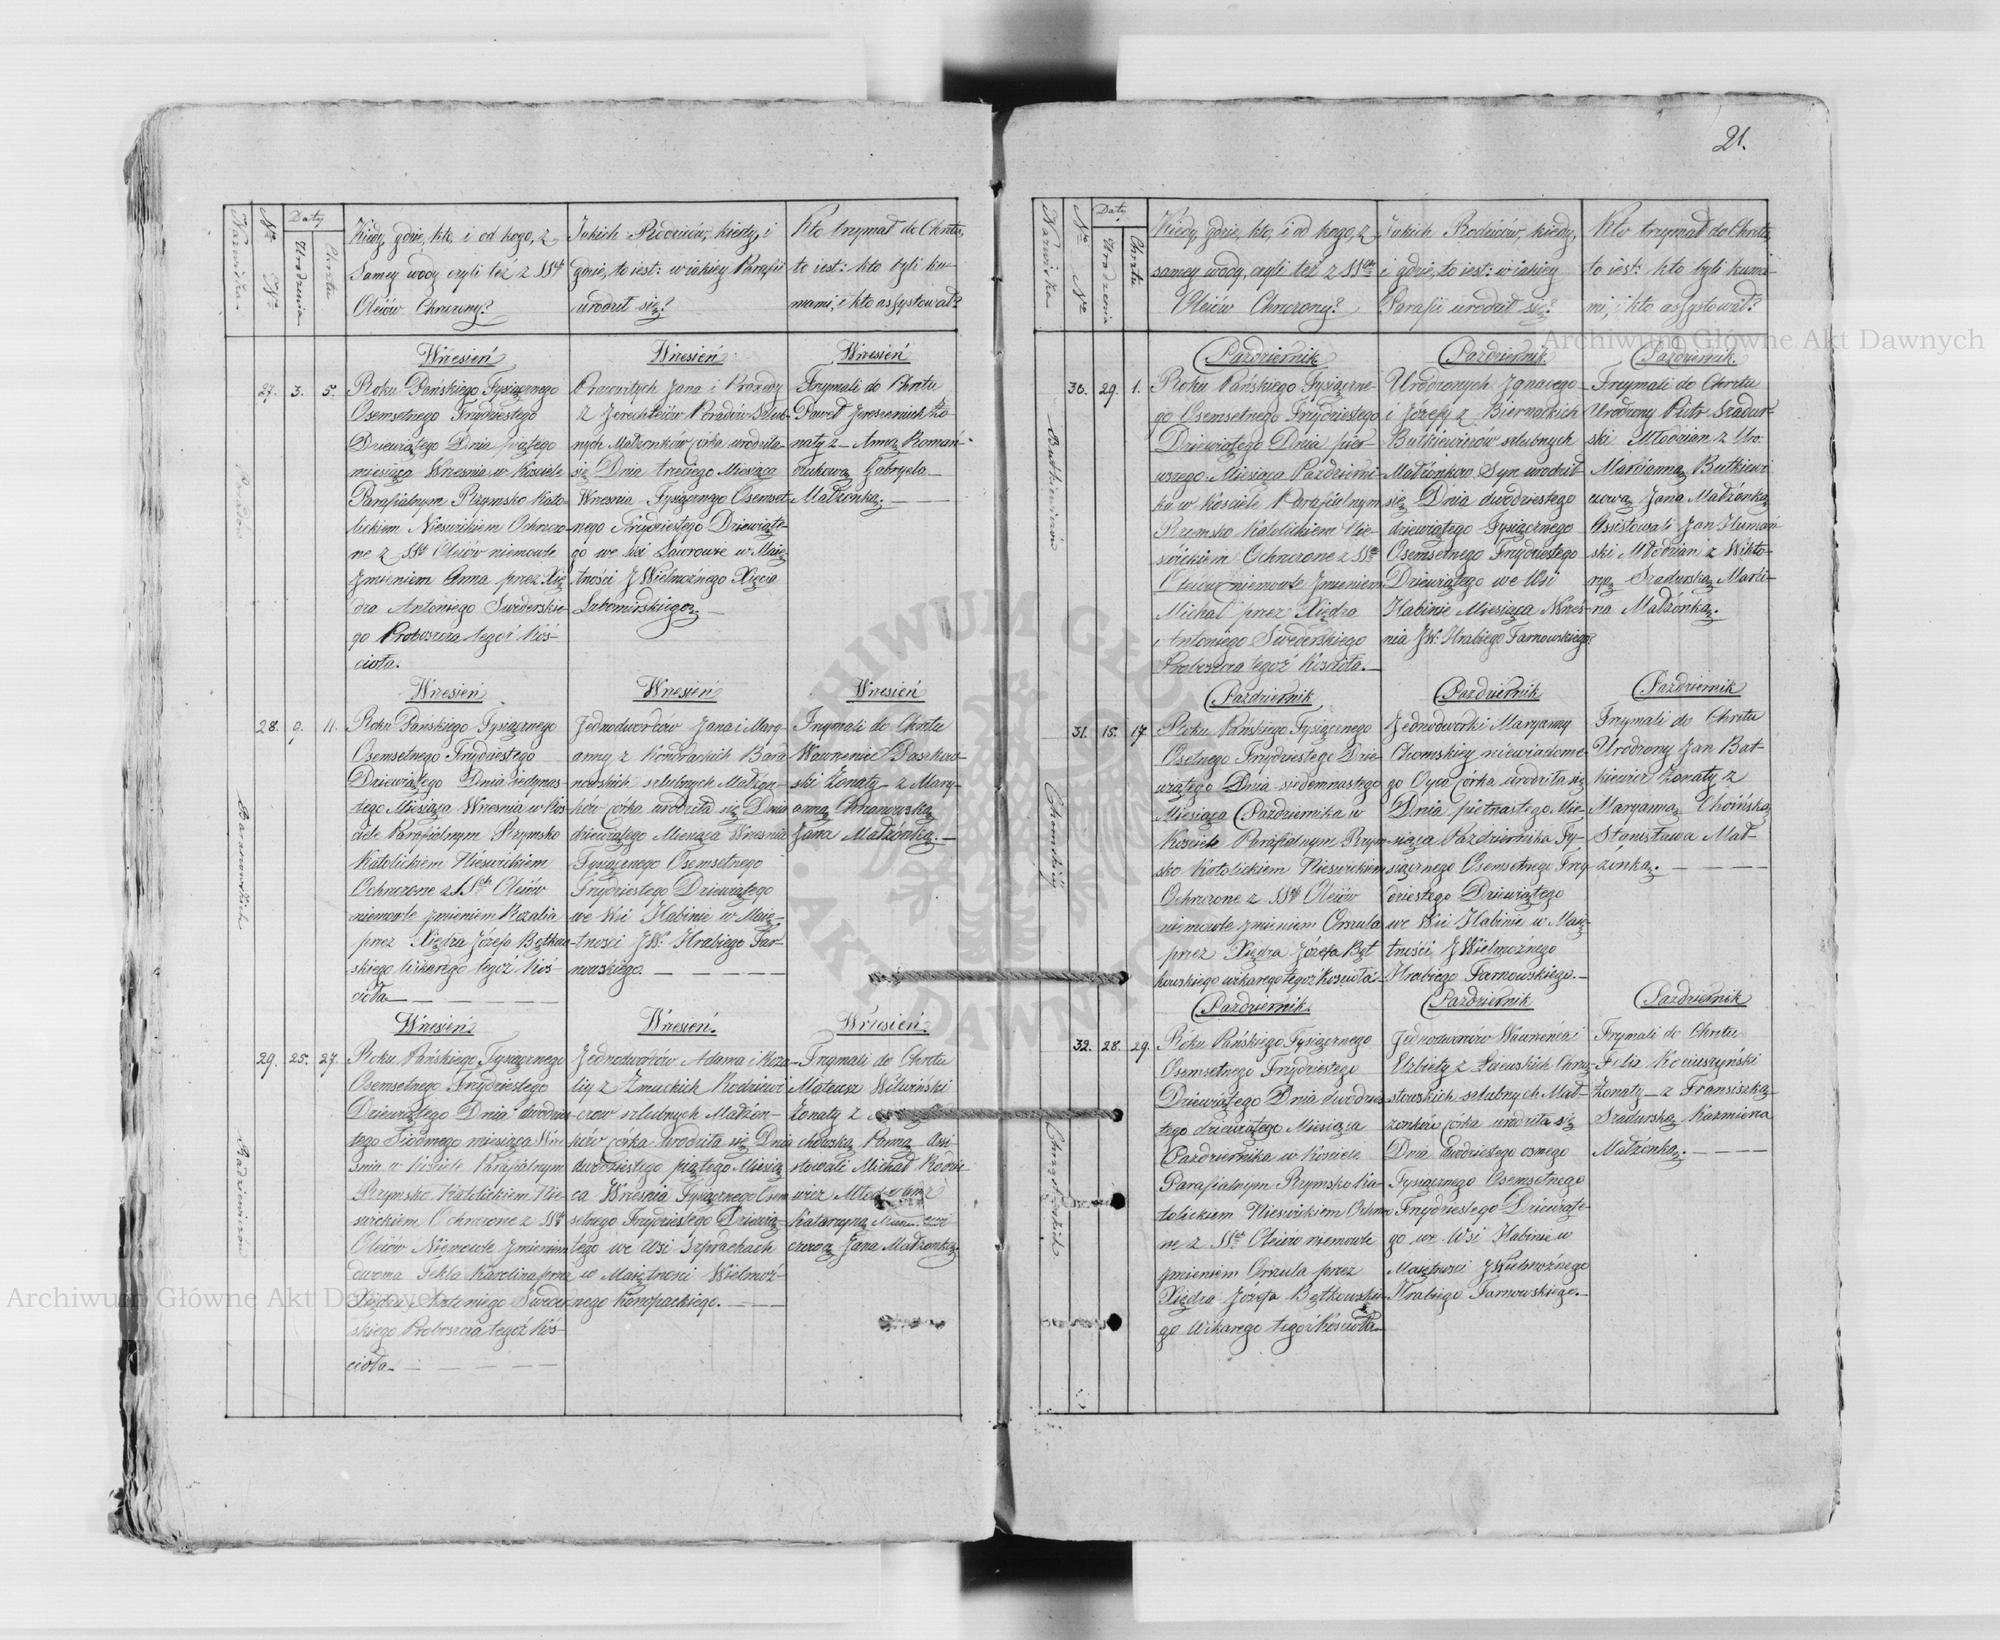 21.
Nazwiska.
Nra Nra
Daty
Urodzenia
Chrztu
Kiedy, gdzie, kto, i od kogo, z
samey wody czyli też z SSch
Oleiów Chrzczony?
Jakich Rodziców, kiedy, i
gdzie, to iest: w iakiey Parafii
urodził się?
Kto trzymał do Chrztu,
to iest: kto byli ku-
mami, i kto assystował?
Wrzesień
27. 3. 5.
Roku Pańskiego Tysiącznego
Osemsetnego Trzydziestego
Dziewiątego Dnia piątego
miesiąca Września w Kościele
Parafialnym Rzymsko Kato-
lickiem Nieswickiem Ochrzczo-
ne z SSch Oleiów niemowle
Jmieniem Anna przez Xię-
dza Antoniego Swederskie-
go Proboszcza tegoż Koś-
cioła.
Wrzesień
Pracowitych Jana i
Ślub-
nych Małżonków córka urodziła
się Dnia trzeciego Miesiąca
Września Tysiącznego Osemset-
nego Trzydziestego Dziewiąte-
go we Wsi Ławrowie w Maię-
tności J Wielmożnego Xięcia
Lubomirskiego.
Wrzesień
Trzymali do Chrztu
Paweł
naty z Anną Romań-
czukową Gabryela
Małżonką.
Wrzesień
28. 9. 11.
Baranowskich
Roku Pańskiego Tysiącznego
Osemsetnego Trzydziestego
Dziewiątego Dnia iedynas-
tego Miesiąca Września w Koś-
ciele Parafialnym Rzymsko
Katolickiem Nieswickiem
Ochrzczone z SSch Oleiów
niemowle Jmieniem Rozalia
przez Xiędza Józefa Bętkow-
skiego Wikarego tegoż Koś-
cioła
Wrzesień
Jednodworców Jana i Mary-
anny z Kondrackich Bara-
nowskich szlubnych Małżon-
ków córka urodziła się Dnia
dziewiątego Miesiąca Września
Tysiącznego Osemsetnego
Trzydziestego Dziewiątego
we Wsi Habinie w Maię-
tności JW. Hrabiego Tar-
nowskiego.
Wrzesień
Trzymali do Chrztu
Wawrzeniec Daszkow-
ski Żonaty z Mary-
anną
Jana Małżonką.
Wrzesień
29. 25. 27.
Radziewiczow
Roku Pańskiego Tysiącznego
Osemsetnego Trzydziestego
Dziewiątego Dnia dwudzies-
tego Siódmego miesiąca Wrze-
śnia w Kościele Parafialnym
Rzymsko Katolickiem Nie-
swickiem Ochrzczone z SSch
Oleiów Niemowle Jmieniem
dwoma Tekla Karolina przez
Xiędza Antoniego Sweder-
skiego Proboszcza tegoż Koś-
cioła
Wrzesień.
Jednodworców Adama i Roza-
lij z Żmuckich Radziewi-
czow szlubnych Małżon-
ków córka urodziła się Dnia
dwudziestego piątego Miesią-
ca Września Tysiącznego Osem-
setnego Trzydziestego Dziewią-
tego we Wsi Szprachach
w Maiętności Wielmoż-
nego Konopackiego.
Wrzesień.
Trzymali do Chrztu
Mateusz Witwiński
Żonaty z
Panną Assi-
stowali Michał Rodzie-
wicz
Katarzyną
czową Jana Małżonką.
Nazwiska
Nra Nra
Daty
Urodzenia
Chrztu
Kiedy, gdzie, kto, i od kogo, z
samey wody, czyli też z SSch
Oleiów Chrzczony?
Jakich Rodziców, kiedy,
i gdzie, to iest: w iakiey
Parafii urodził się?
Kto trzymał do Chrztu,
to iest: kto byli kuma-
mi, i kto assystował?
Październik
30. 29. 1.
Butkiewiczow
Roku Pańskiego Tysiączne-
go Osemsetnego Trzydziestego
Dziewiątego Dnia pier-
wszego Miesiąca Październi-
ka w Kościele Parafialnym
Rzymsko Katolickiem Nie-
swickiem Ochrzczone z SSch
Oleiów niemowle Jmieniem
Michał przez Xiędza
Antoniego Swederskiego
Proboszcza tegoż Kościoła.
Październik
Urodzonych Jgnacego
i Józefy z Biernackich
Butkiewiczów szlubnych
Małżonkow Syn urodził
się Dnia dwudziestego
dziewiątego Tysiącznego
Osemsetnego Trzydziestego
Dziewiątego we Wsi
Habinie Miesiąca Wrześ-
nia JW. Hrabiego Tarnowskiego.
Październik
Trzymali do Chrztu
Urodzony Piotr Szadur-
ski Młodzian z Uro:
Marcianną Butkiewi-
czową Jana Małżonką
Assistowali Jan
ski Młodzian z Wikto-
ryą Szadurską Marci-
na Małżonką.
Październik
31. 15. 17.
Chomskiy
Roku Pańskiego Tysiącznego
Osetnego Trzydziestego Dzie-
wiątego Dnia siedemnastego
Miesiąca Października w
Kościele Parafialnym Rzym-
sko Katolickiem Nieswickiem
Ochrzczone z SSch Oleiów
niemowle Jmieniem Orszula
przez Xiędza Józefa Bęt-
kowskiego wikarego tegoż Kościoła
Październik
Jednodworki Maryanny
Chomskiey niewiadome-
go Oyca córka urodziła się
Dnia pietnastego Mie-
siąca Października Ty-
siącznego Osemsetnego Trzy-
dziestego Dziewiątego
we Wsi Habinie w Maię-
tności J Wielmożnego
Hrabiego Tarnowskiego.
Październik
Trzymali do Chrztu
Urodzony Jan But-
kiewicz Żonaty z
Maryanną Choińską
Stanisława Mał-
żonką.
Październik
32. 28. 29.
Chrząstowskich
Roku Pańskiego Tysiącznego
Osemsetnego Trzydziestego
Dziewiątego Dnia dwudzies-
tego dziewiątego Miesiąca
Października w Kościele
Parafialnym Rzymsko Ka-
tolickiem Nieswickiem Ochrzczo-
ne z SSch Oleiów niemowle
Jmieniem Orszula przez
Xiędza Józefa Bętkowskie-
go Wikarego tegoż Kościoła
Październik
Jednodworców Wawrzeńca i
Elzbiety z Chrzą-
stowskich szlubnych Mał-
żonków córka urodziła się
Dnia dwudziestego osmego
Tysiącznego Osemsetnego
Trzydziestego Dziewiąte-
go we Wsi Habinie w
Maiętności JWielmożnego
Hrabiego Tarnowskiego.
Październik
Trzymali do Chrztu
Felix Kociuszyński
Żonaty z Franciszką
Szadurską Kazmierza
Małżonką.
Archiwum Główne Akt Dawnych
Archiwum Główne Akt Dawnych
ARCHIWUM GŁÓWNE AKT DAWNYCH